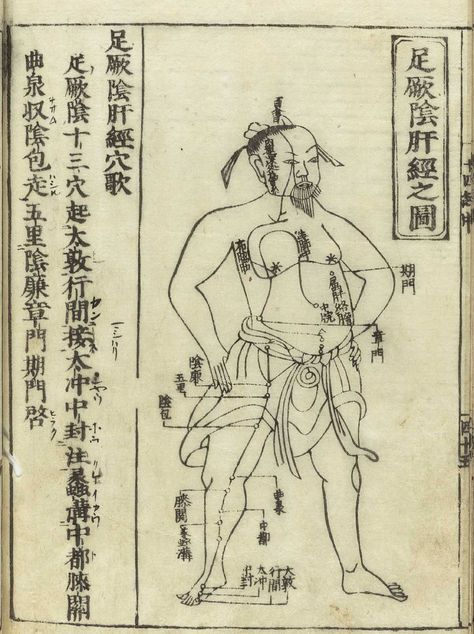 足厥陰肝經之圖
百會
期門
章門
屬肝
絡膽
中脘
陰廉
五里
陰包
曲泉
膝關
中都
蠡溝
大敦
行間
太冲
中封
足厥陰肝經穴歌
足厥陰十三穴起太敦行間接太冲中封注蠡溝中都膝關
曲泉収陰包走五里陰廉章門期門啓